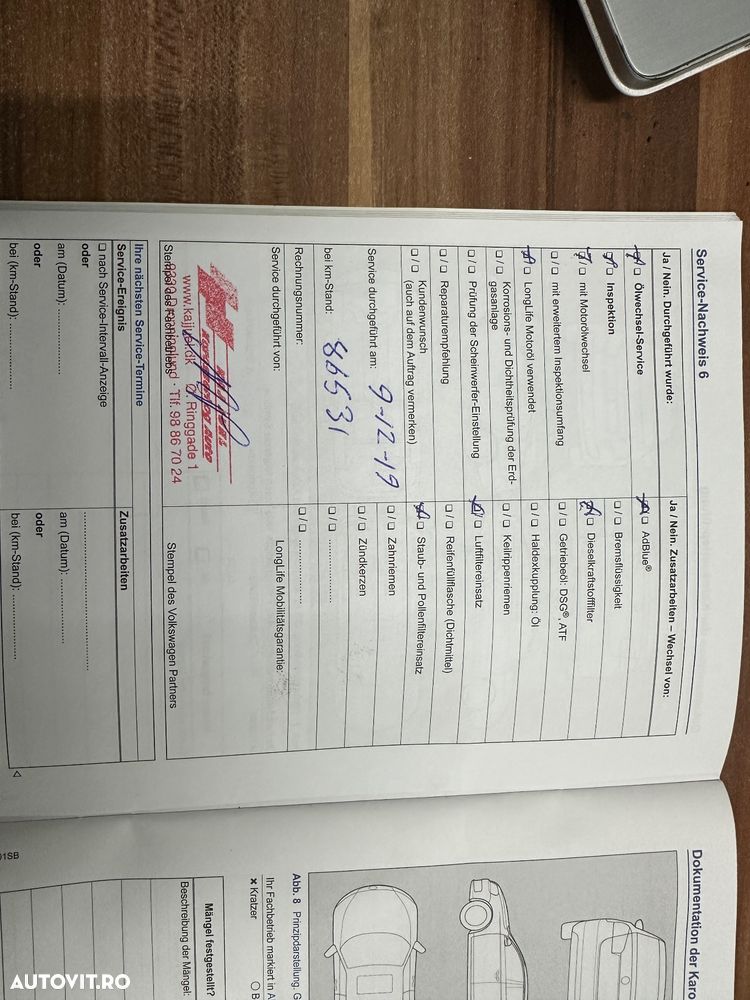 Service-Nachweis 6
Ja / Nein. Durchgeführt wurde:
Ölwechsel-Service
Inspektion
mit Motorölwechsel
mit erweitertem Inspektionsumfang
LongLife Motoröl verwendet
Korrosions- und Dichtheitsprüfung der Erd-
gasanlage
Prüfung der Scheinwerfer-Einstellung
Reparaturempfehlung
Kundenwunsch
(auch auf dem Auftrag vermerken)
Service durchgeführt am: 9-12-19
bei km-Stand: 86531
Rechnungsnummer:
Service durchgeführt von:
Ringgade 1
Tlf. 98 86 70 24
Stempel des Fachbetriebs
Ja / Nein. Zusatzarbeiten – Wechsel von:
AdBlue®
Bremsflüssigkeit
Dieselkraftstofffilter
Getriebeöl: DSG®, ATF
Haldexkupplung: Öl
Keilrippenriemen
Luftfiltereinsatz
Reifenfüllflasche (Dichtmittel)
Staub- und Pollenfiltereinsatz
Zahnriemen
Zündkerzen
LongLife Mobilitätsgarantie:
Stempel des Volkswagen Partners
Ihre nächsten Service-Termine
Service-Ereignis
nach Service-Intervall-Anzeige
oder
am (Datum):
oder
bei (km-Stand):
Zusatzarbeiten
am (Datum):
oder
bei (km-Stand):
Dokumentation der Karo
Abb. 8 Prinzipdarstellung, G
Ihr Fachbetrieb markiert in A
× Kratzer
Mängel festgestellt?
Beschreibung der Mängel:
AUTOVIT.RO